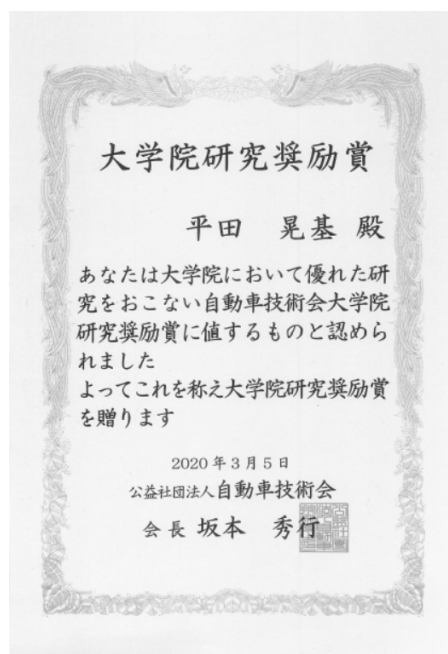 大学院研究奨励賞
平田 晃基 殿
あなたは大学院において優れた研
究をおこない自動車技術会大学院
研究奨励賞に値するものと認めら
れました
よってこれを称え大学院研究奨励賞
を贈ります
2020年3月5日
公益社団法人自動車技術会
会長 坂本 秀行